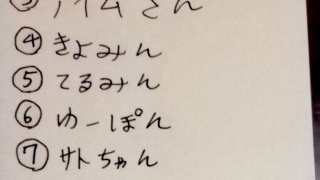 ③ アイムさん
④ きよみん
⑤ てるみん
⑥ ゆーぽん
⑦ サトちゃん